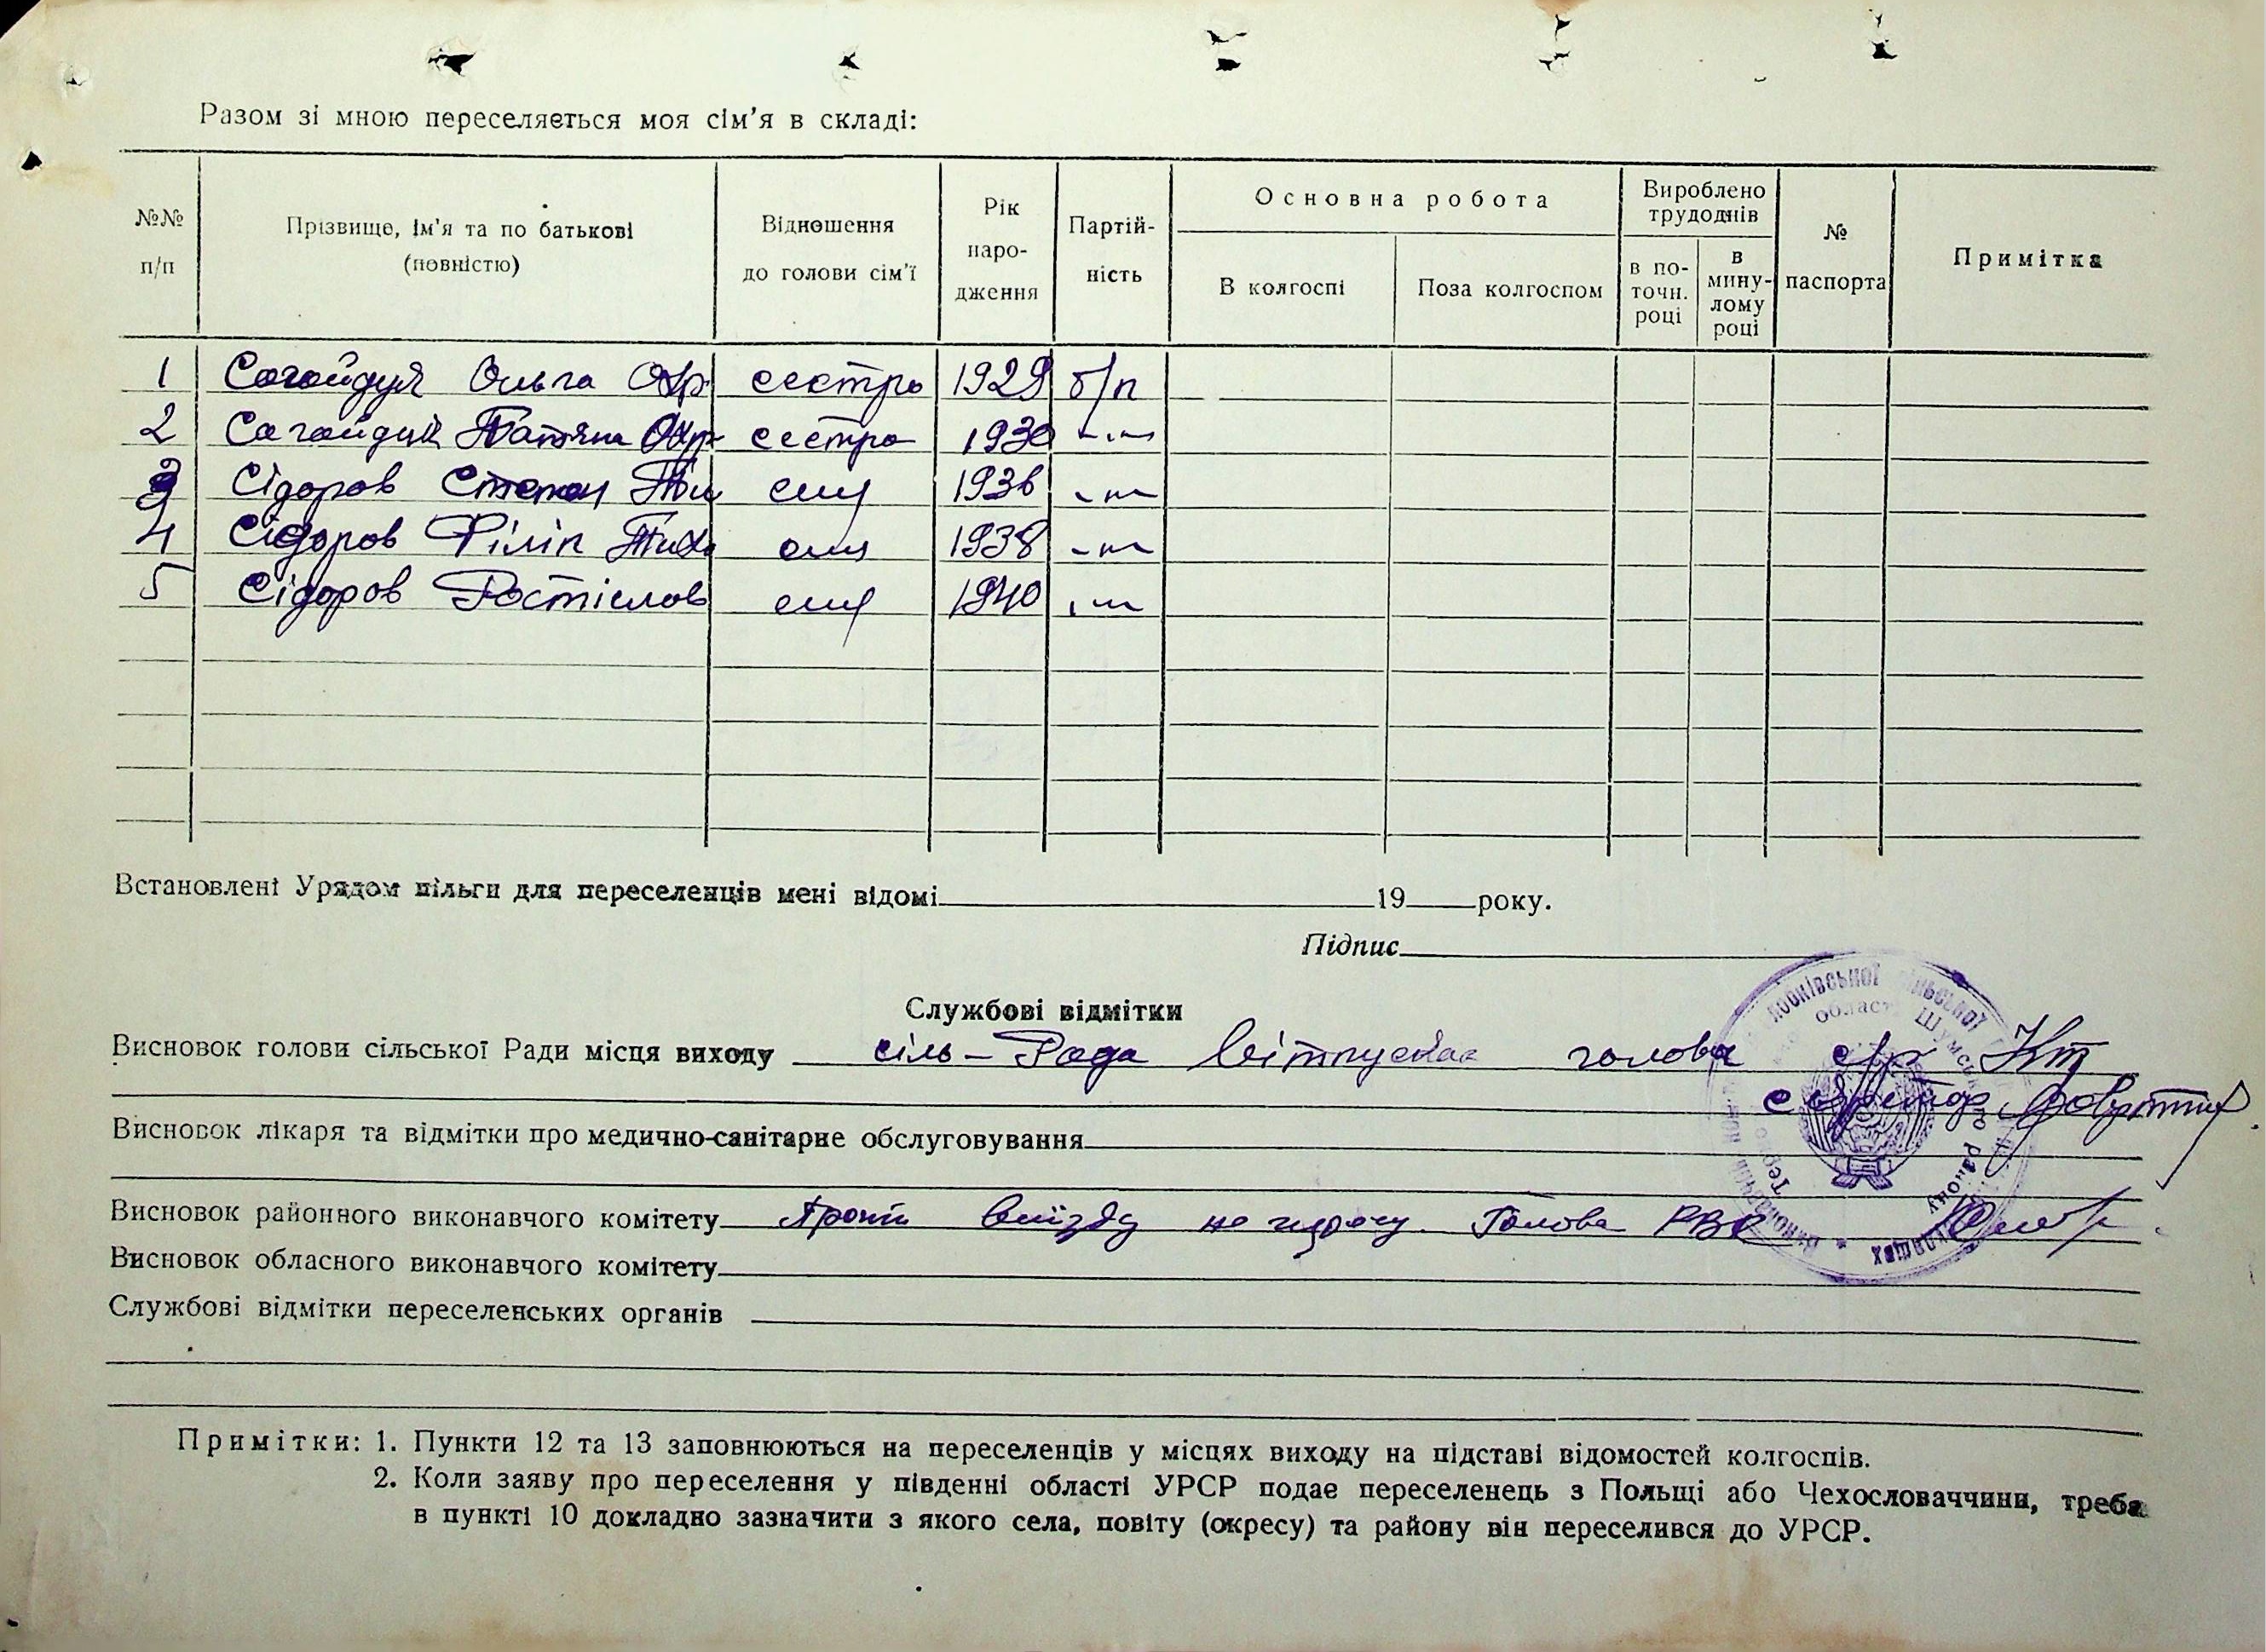 Разом зі мною переселяється моя сім'я в складі:
№№ п/п
Прізвище, ім'я та по батькові (повністю)
Відношення до голови сім'ї
Рік народження
Партійність
Основна робота
В колгоспі
Поза колгоспом
Вироблено трудоднів
в поточн. році
в минулому році
№ паспорта
Примітка
1 Сагайдук Ольга сестра 1929 б/п
2 Сагайдук Татяна сестра 1930 -"-
3 Сідоров Степан син 1936 -"-
4 Сідоров Філіп Тихо син 1938 -"-
5 Сідоров Ростіслов син 1940 -"-
Встановлені Урядом пільги для переселенців мені відомі 19 року.
Підпис
Службові відмітки
Висновок голови сільської Ради місця виходу сіль-Рада вітпускає голова с/р
секретар
Висновок лікаря та відмітки про медично-санітарне обслуговування
Висновок районного виконавчого комітету Проти виїзду не заперечу. Голова РВК
Висновок обласного виконавчого комітету
Службові відмітки переселенських органів
Примітки: 1. Пункти 12 та 13 заповнюються на переселенців у місцях виходу на підставі відомостей колгоспів.
2. Коли заяву про переселення у південні області УРСР подає переселенець з Польщі або Чехословаччини, треба
в пункті 10 докладно зазначити з якого села, повіту (окресу) та району він переселився до УРСР.